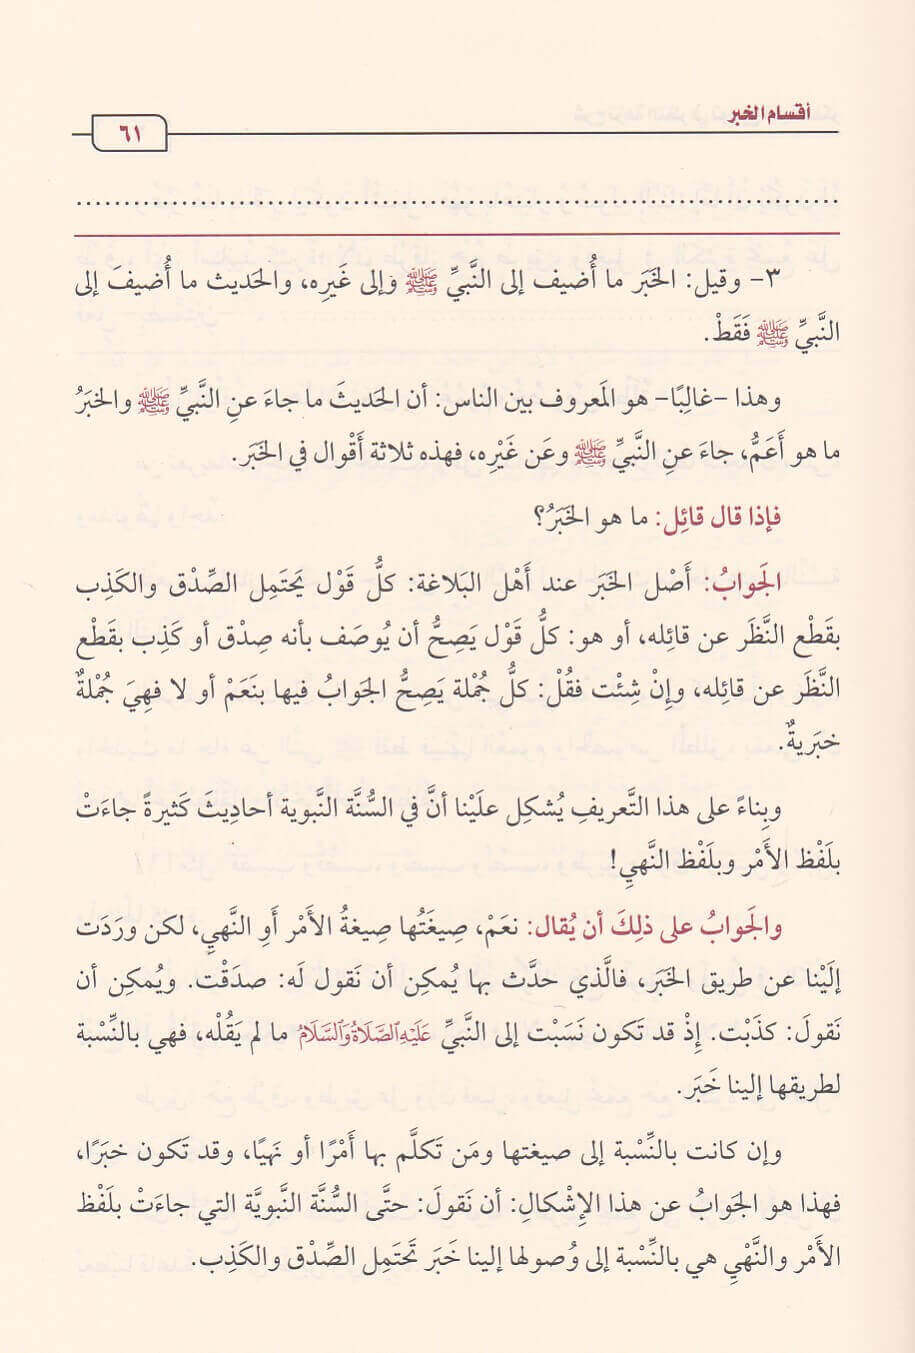 أقسام الخبر
٦١
٣- وقيل: الخَبَر ما أُضيف إلى النَّبيِّ ﷺ وإلى غَيرِه، والحَديث ما أُضيفَ إلى
النَّبيِّ ﷺ فَقَطْ.
وهذا -غالِبًا- هو المَعروف بين الناس: أن الحَديثَ ما جاءَ عنِ النَّبيِّ ﷺ والخبَرُ
ما هو أَعَمُّ، جاءَ عنِ النَّبيِّ ﷺ وعَن غَيْرِه، فهذه ثلاثة أَقْوال في الخَبَر.
فإذا قال قائِل: ما هو الخَبَرُ؟
الجَوابُ: أَصْل الخَبَر عند أَهْل البَلاغة: كلُّ قَوْل يَحتَمِل الصِّدْق والكَذِب
بقَطْع النَّظَر عن قائِله، أو هو: كلُّ قَوْل يَصِحُّ أن يُوصَف بأنه صِدْق أو كَذِب بقَطْع
النَّظَر عن قائِله، وإنْ شِئْت فقُلْ: كلُّ جُمْلة يَصِحُّ الجَوابُ فيها بنَعَمْ أو لا فهِيَ جُمْلةٌ
خبَريةٌ.
وبِناءً على هذا التَّعريفِ يُشكِل علَيْنا أنَّ في السُّنَّة النَّبوية أحاديثَ كَثيرةً جاءَتْ
بلَفْظ الأَمْر وبلَفْظ النَّهيِ!
والجَوابُ على ذلِكَ أن يُقال: نعَمْ، صِيغَتُها صِيغةُ الأَمْر أَوِ النَّهيِ، لكن ورَدَت
إلَيْنا عن طريق الخَبَر، فالَّذي حدَّث بها يُمكِن أن نَقول لَه: صدَقْت. ويُمكِن أن
نَقولَ: كذَبْت. إِذْ قد تَكون نَسَبْت إلى النَّبيِّ عَلَيْهِ الصَّلَاةُ وَالسَّلَامُ ما لم يَقُلْه، فهي بالنِّسْبة
لطريقها إلينا خَبَر.
وإن كانت بالنِّسْبة إلى صيغتها ومَن تَكلَّم بها أَمْرًا أو نَهيًا، وقد تَكون خبَرًا،
فهذا هو الجَوابُ عن هذا الإِشْكالِ: أن نَقولَ: حتَّى السُّنَّة النَّبويَّة التي جاءَتْ بلَفْظ
الأَمْر والنَّهْيِ هي بالنِّسْبة إلى وُصولها إلينا خَبَر تَحتَمِل الصِّدْق والكَذِب.